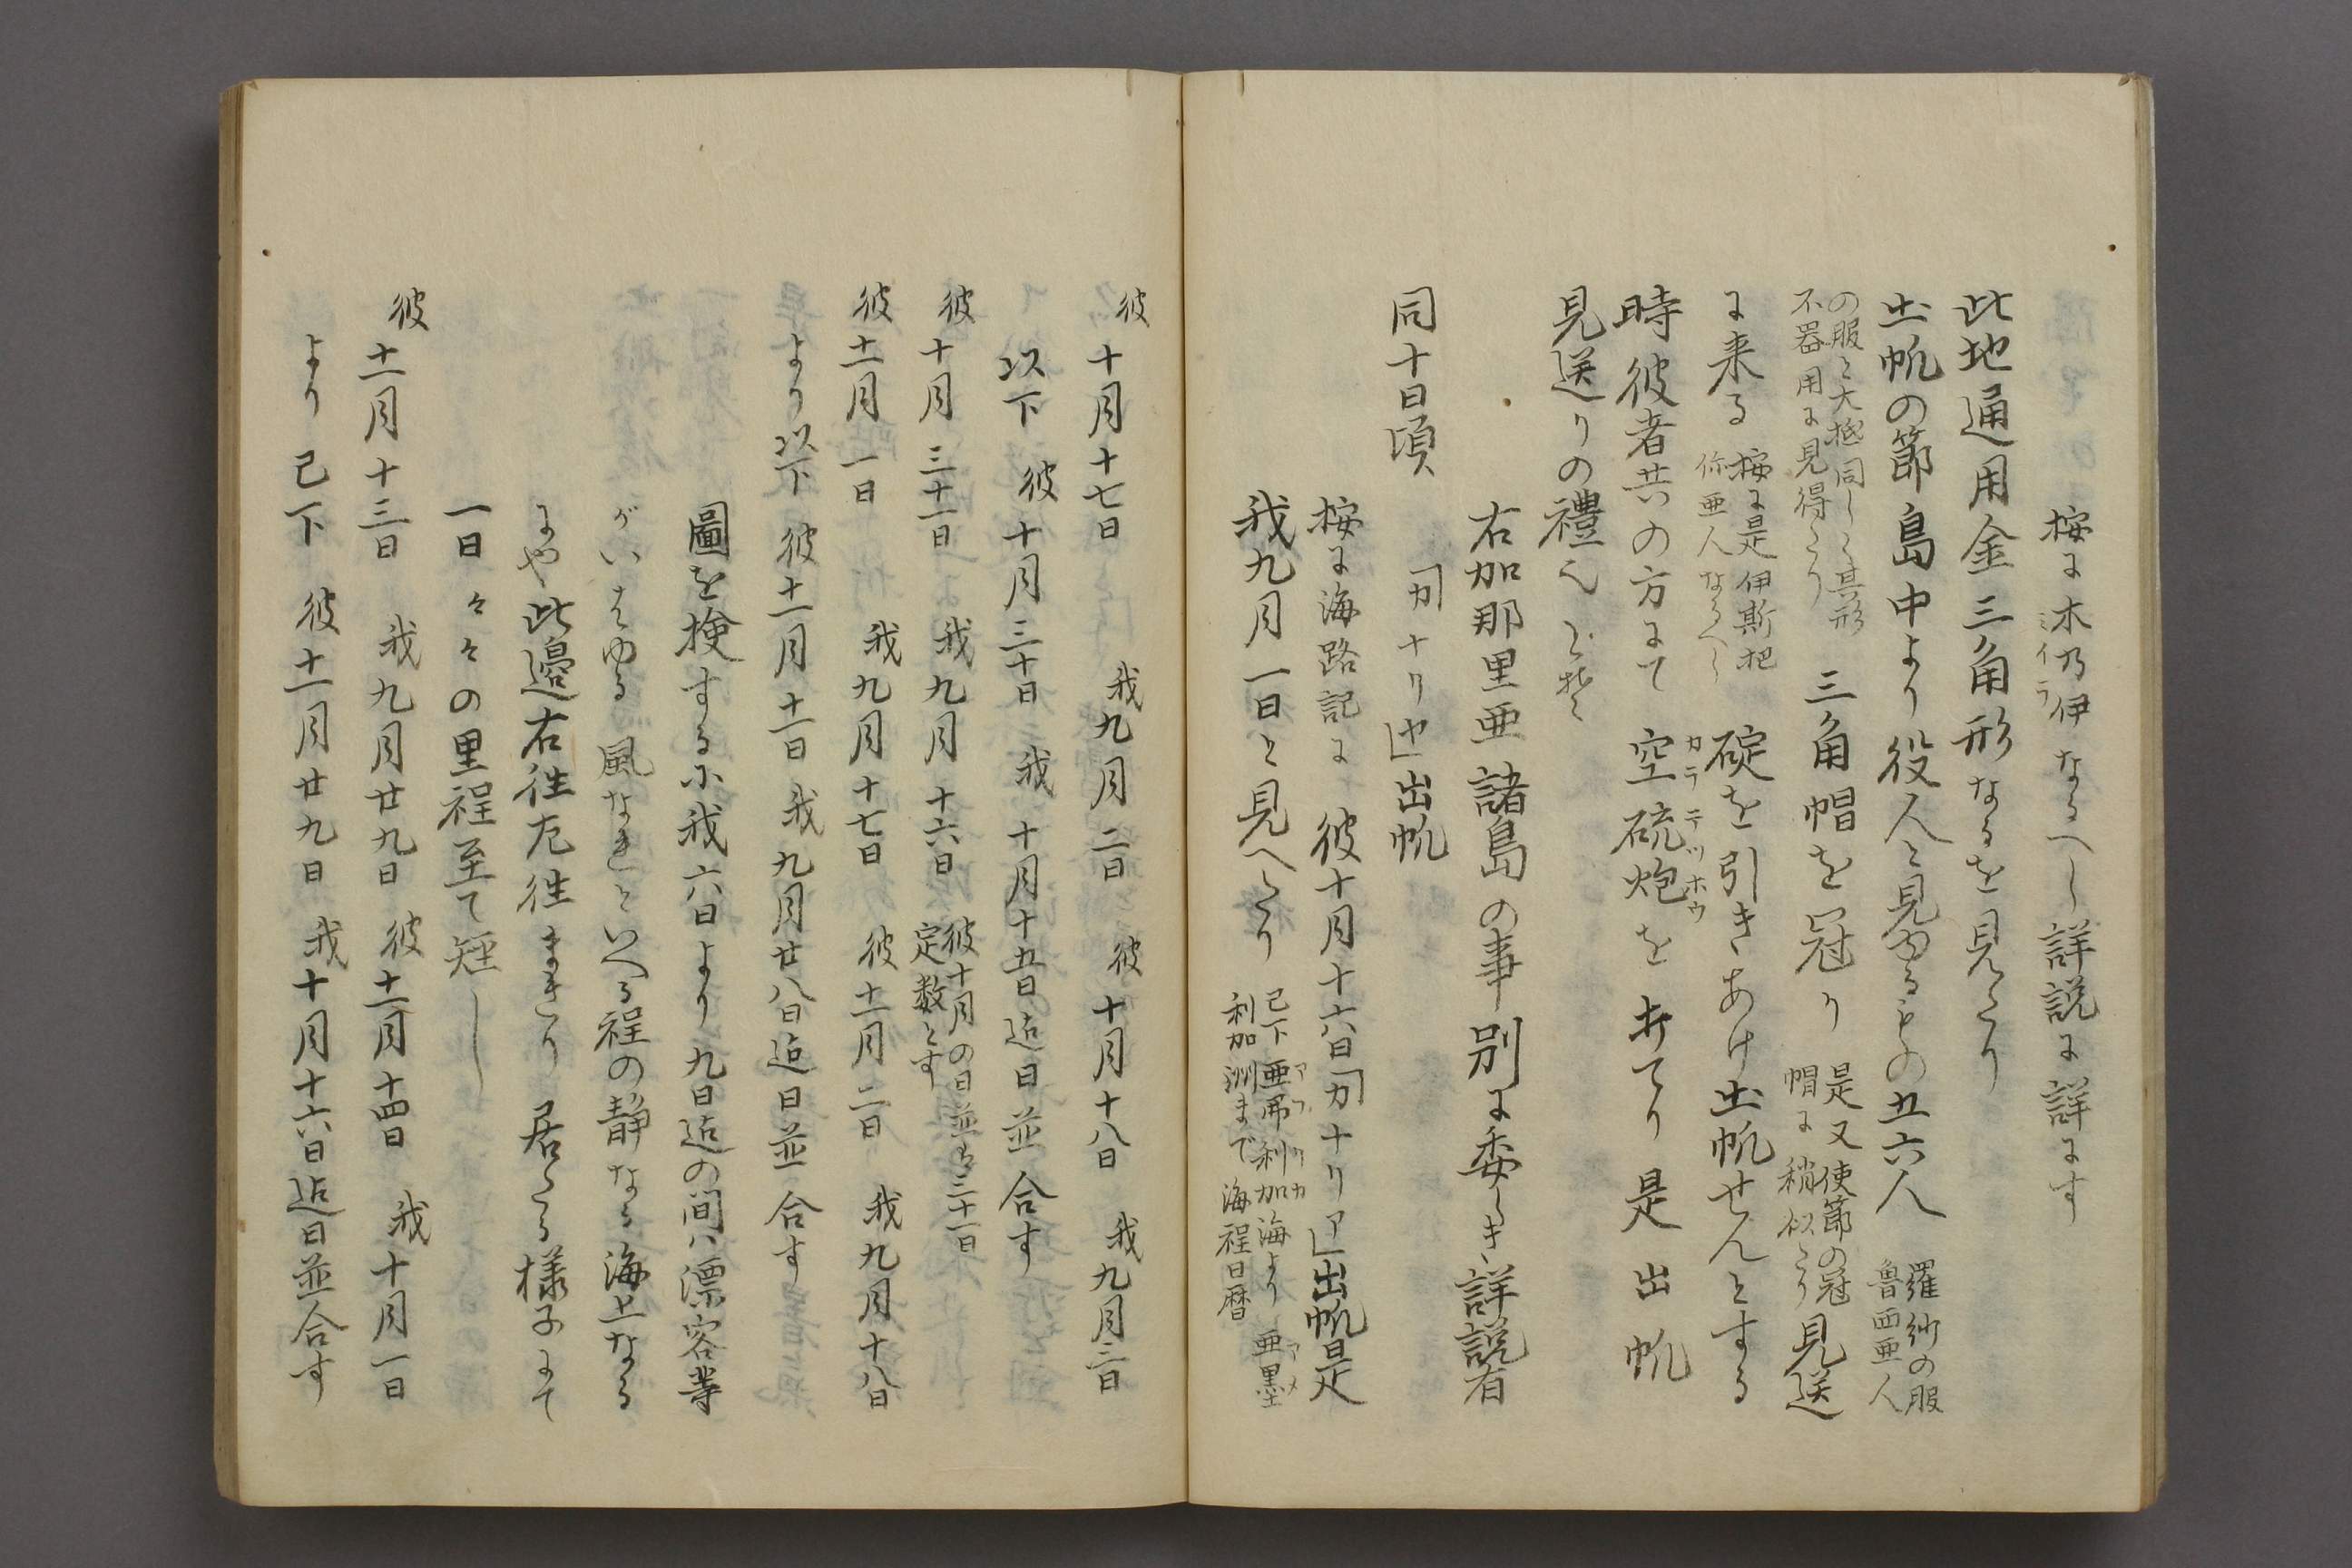 按に木乃伊なるへし詳説に詳にす
ミイラ
此地通用金三角形なるを見たり
出帆の節島中より役人と見ゆるもの五六人
羅紗の服
魯西亜人
の服と大抵同しく其形
不器用に見得たり
三角帽を冠り
是又使節の冠
帽に稍似たり
見送
に来る
按に是伊斯把
你亜人なるへし
碇を引きあけ出帆せんとする
時彼者共の方にて空硫炮を打てり是出帆
カラテツホウ
見送りの禮也と
右加那里亜諸島の事別に委しき詳説有
同十日頃「カナリヤ」出帆
按に海路記に彼十月十六日「カナリア」出帆是
我九月一日と見へたり
已下亜弗利加海より亜墨
アフリカ
アメ
利加洲まで海程日暦
彼十月十七日 我九月二日 彼十月十八日 我九月三日
以下 彼十月三十日 我十月十五日迄日並合す
彼十月三十一日 我九月十六日
彼十月の日並は三十一日
定数とす
彼十一月一日 我九月十七日 彼十一月二日 我九月十八日
より以下 彼十一月十二日 我九月廿八日迄日並合す
圖を検するに我六日より九日迄の間は漂客等
がいはゆる風なぎといへる程の静なる海上なる
にや此邊右往左往まきり居たる様子にて
一日々々の里程至て短し
彼十一月十三日 我九月廿九日 彼十一月十四日 我十月一日
より已下 彼十一月廿九日 我十月十六日迄日並合す